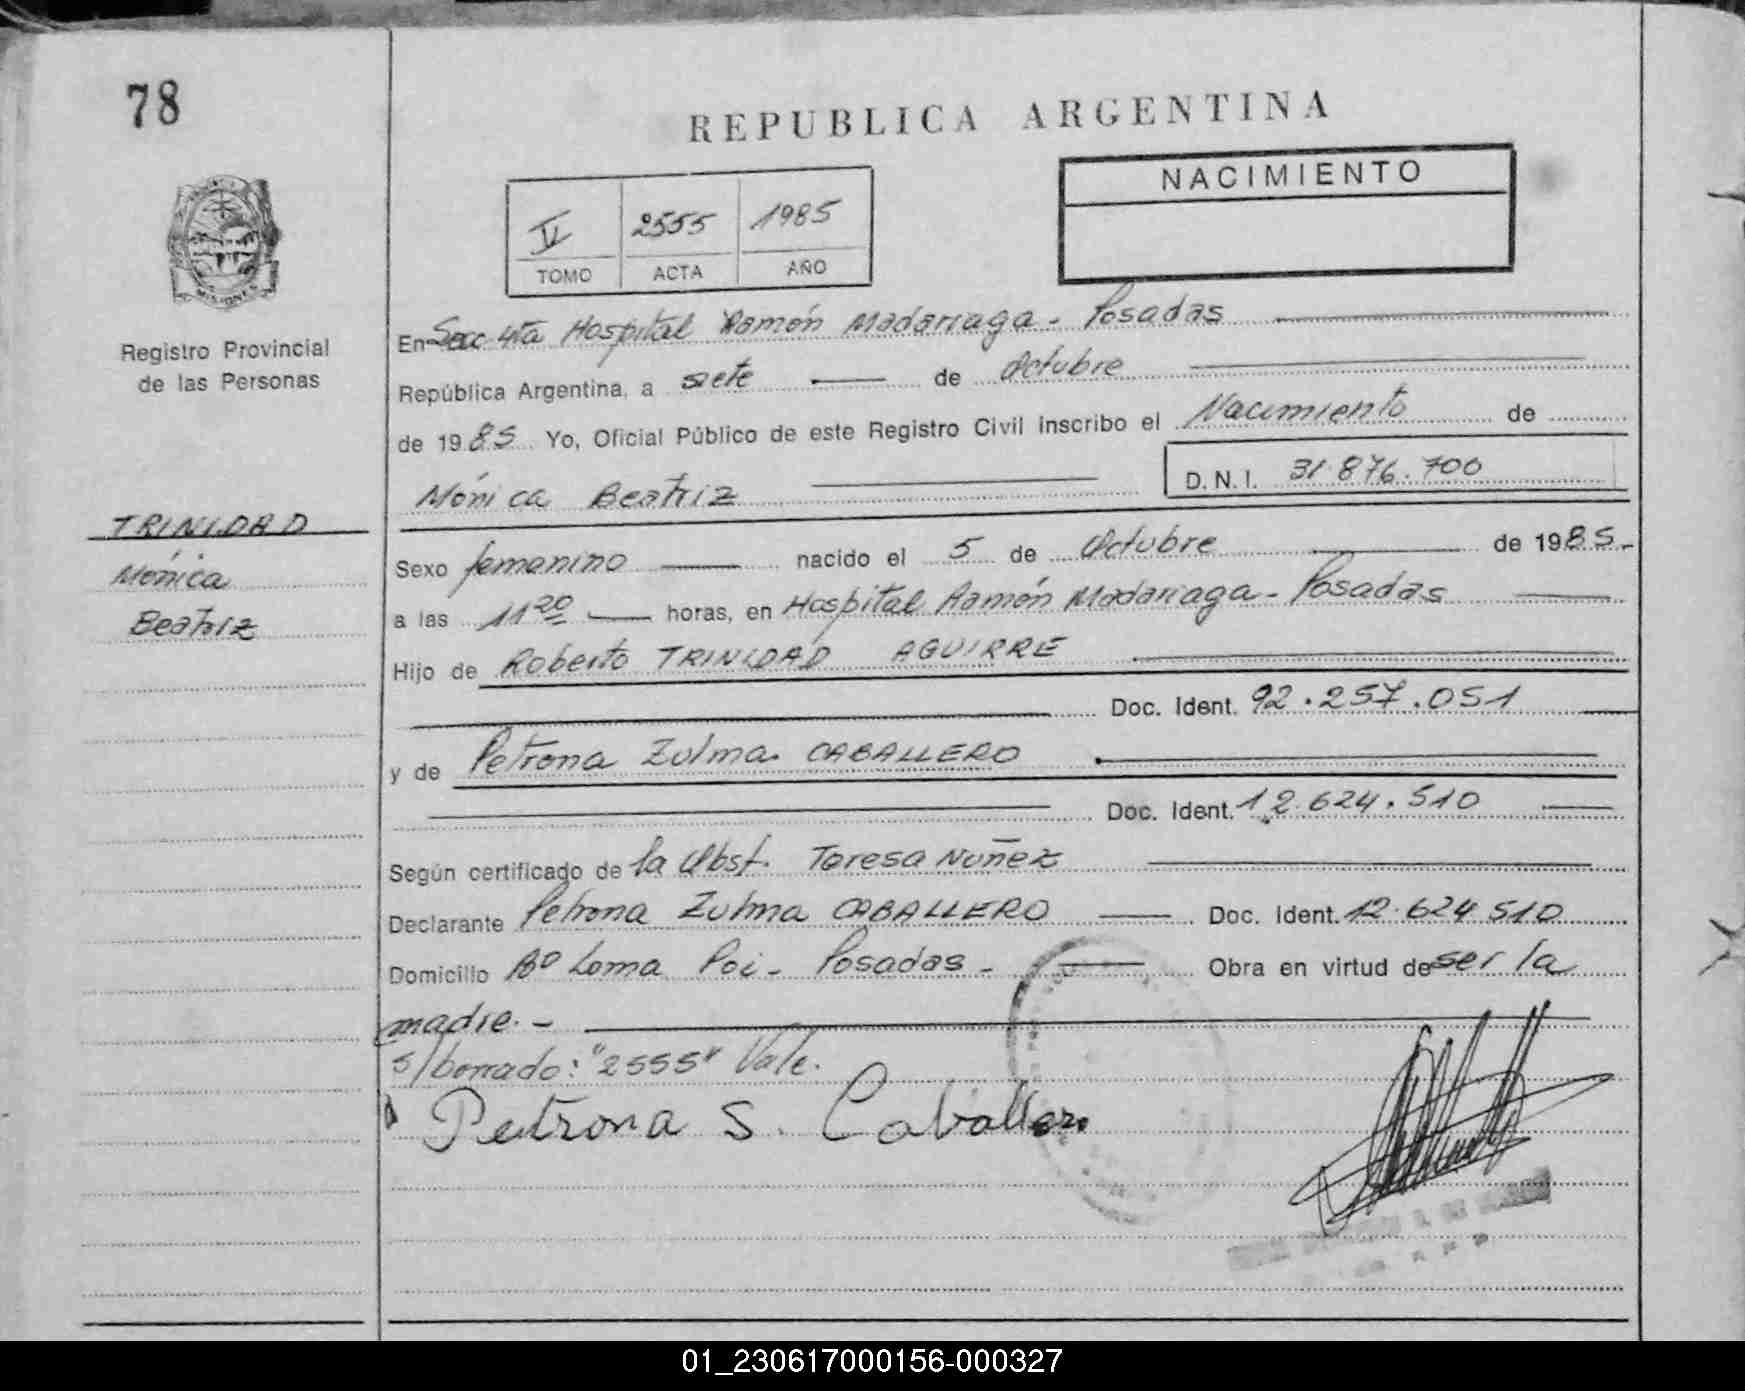 78
REPUBLICA ARGENTINA
NACIMIENTO
II 2555 1985
TOMO ACTA AÑO
MISIONES
Registro Provincial
de las Personas
TRINIDAD
Mónica
Beatriz
En Secc 4ta Hospital Ramón Madariaga - Posadas
República Argentina, a siete de Octubre
de 1985 Yo, Oficial Público de este Registro Civil Inscribo el Nacimiento de
Mónica Beatriz D.N.I. 31.876.700
Sexo femenino nacido el 5 de Octubre de 1985.-
a las 11 20 horas, en Hospital Ramón Madariaga - Posadas
Hijo de Roberto TRINIDAD AGUIRRE
Doc. Ident. 92.257.051
y de Petrona Zulma CABALLERO
Doc. Ident. 12.624.510
Según certificado de la Obst. Teresa Nuñez
Declarante Petrona Zulma CABALLERO Doc. Ident. 12.624.510
Domicilio Bº Loma Poi - Posadas - Obra en virtud de ser la
madre. -
s/borrado: "2555" Vale.
Petrona S. Caballero
01_230617000156-000327